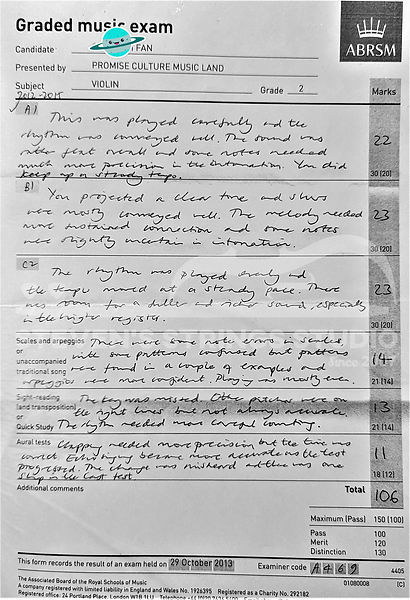 Graded music exam
ABRSM
Candidate FAN
Presented by PROMISE CULTURE MUSIC LAND
Subject VIOLIN Grade 2 Marks
2012-2015
A1
This was played carefully and the
rhythm was conveyed well. The sound was 22
rather flat overall and some notes needed
much more precision in the intonation. You did
keep up a steady tempo. 30 (20)
B1
You projected a clear tone and slurs
were mostly conveyed well. The melody needed 23
more sustained connection and some notes
were slightly uncertain in intonation. 30 (20)
C2
The rhythm was played evenly and
the tempo moved at a steady pace. There 23
was room for a fuller and richer sound, especially
in the higher register. 30 (20)
Scales and arpeggios There were some note errors in scales,
or with some patterns confused but patterns
unaccompanied were found in a couple of examples and 14
traditional song arpeggios were more confident. Playing was mostly even. 21 (14)
Sight-reading The key was missed. Other pitches were on
(and transposition) the right lines but not always accurate. 13
or
Quick Study The rhythm needed more careful counting. 21 (14)
Aural tests Clapping needed more precision but the time was
correct. Echo singing became more accurate as the test 11
progressed. The change was misheard and there was one
slip in the last test. 18 (12)
Additional comments Total 106
Maximum (Pass) 150 (100)
Pass 100
Merit 120
Distinction 130
This form records the result of an exam held on 29 October 2013 Examiner code A469 4405
The Associated Board of the Royal Schools of Music 01080008 (C)
A company registered with limited liability in England and Wales No. 1926395 Registered as a Charity No. 292182
Registered office: 24 Portland Place, London W1B 1LU